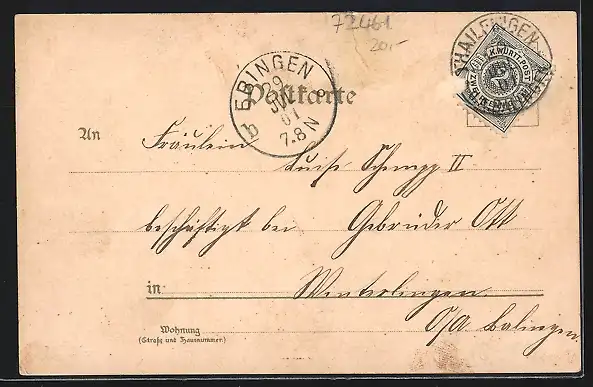 72461
20,-
THAILFINGEN
K.WÜRTT.POST
EBINGEN
9
JUL
01
7-8 N
b
Postkarte
An Fräulein
Luise Schempp II
beschäftigt bei Gebrüder Ott
in Winterlingen.
O/A. Balingen.
Wohnung
(Straße und Hausnummer)